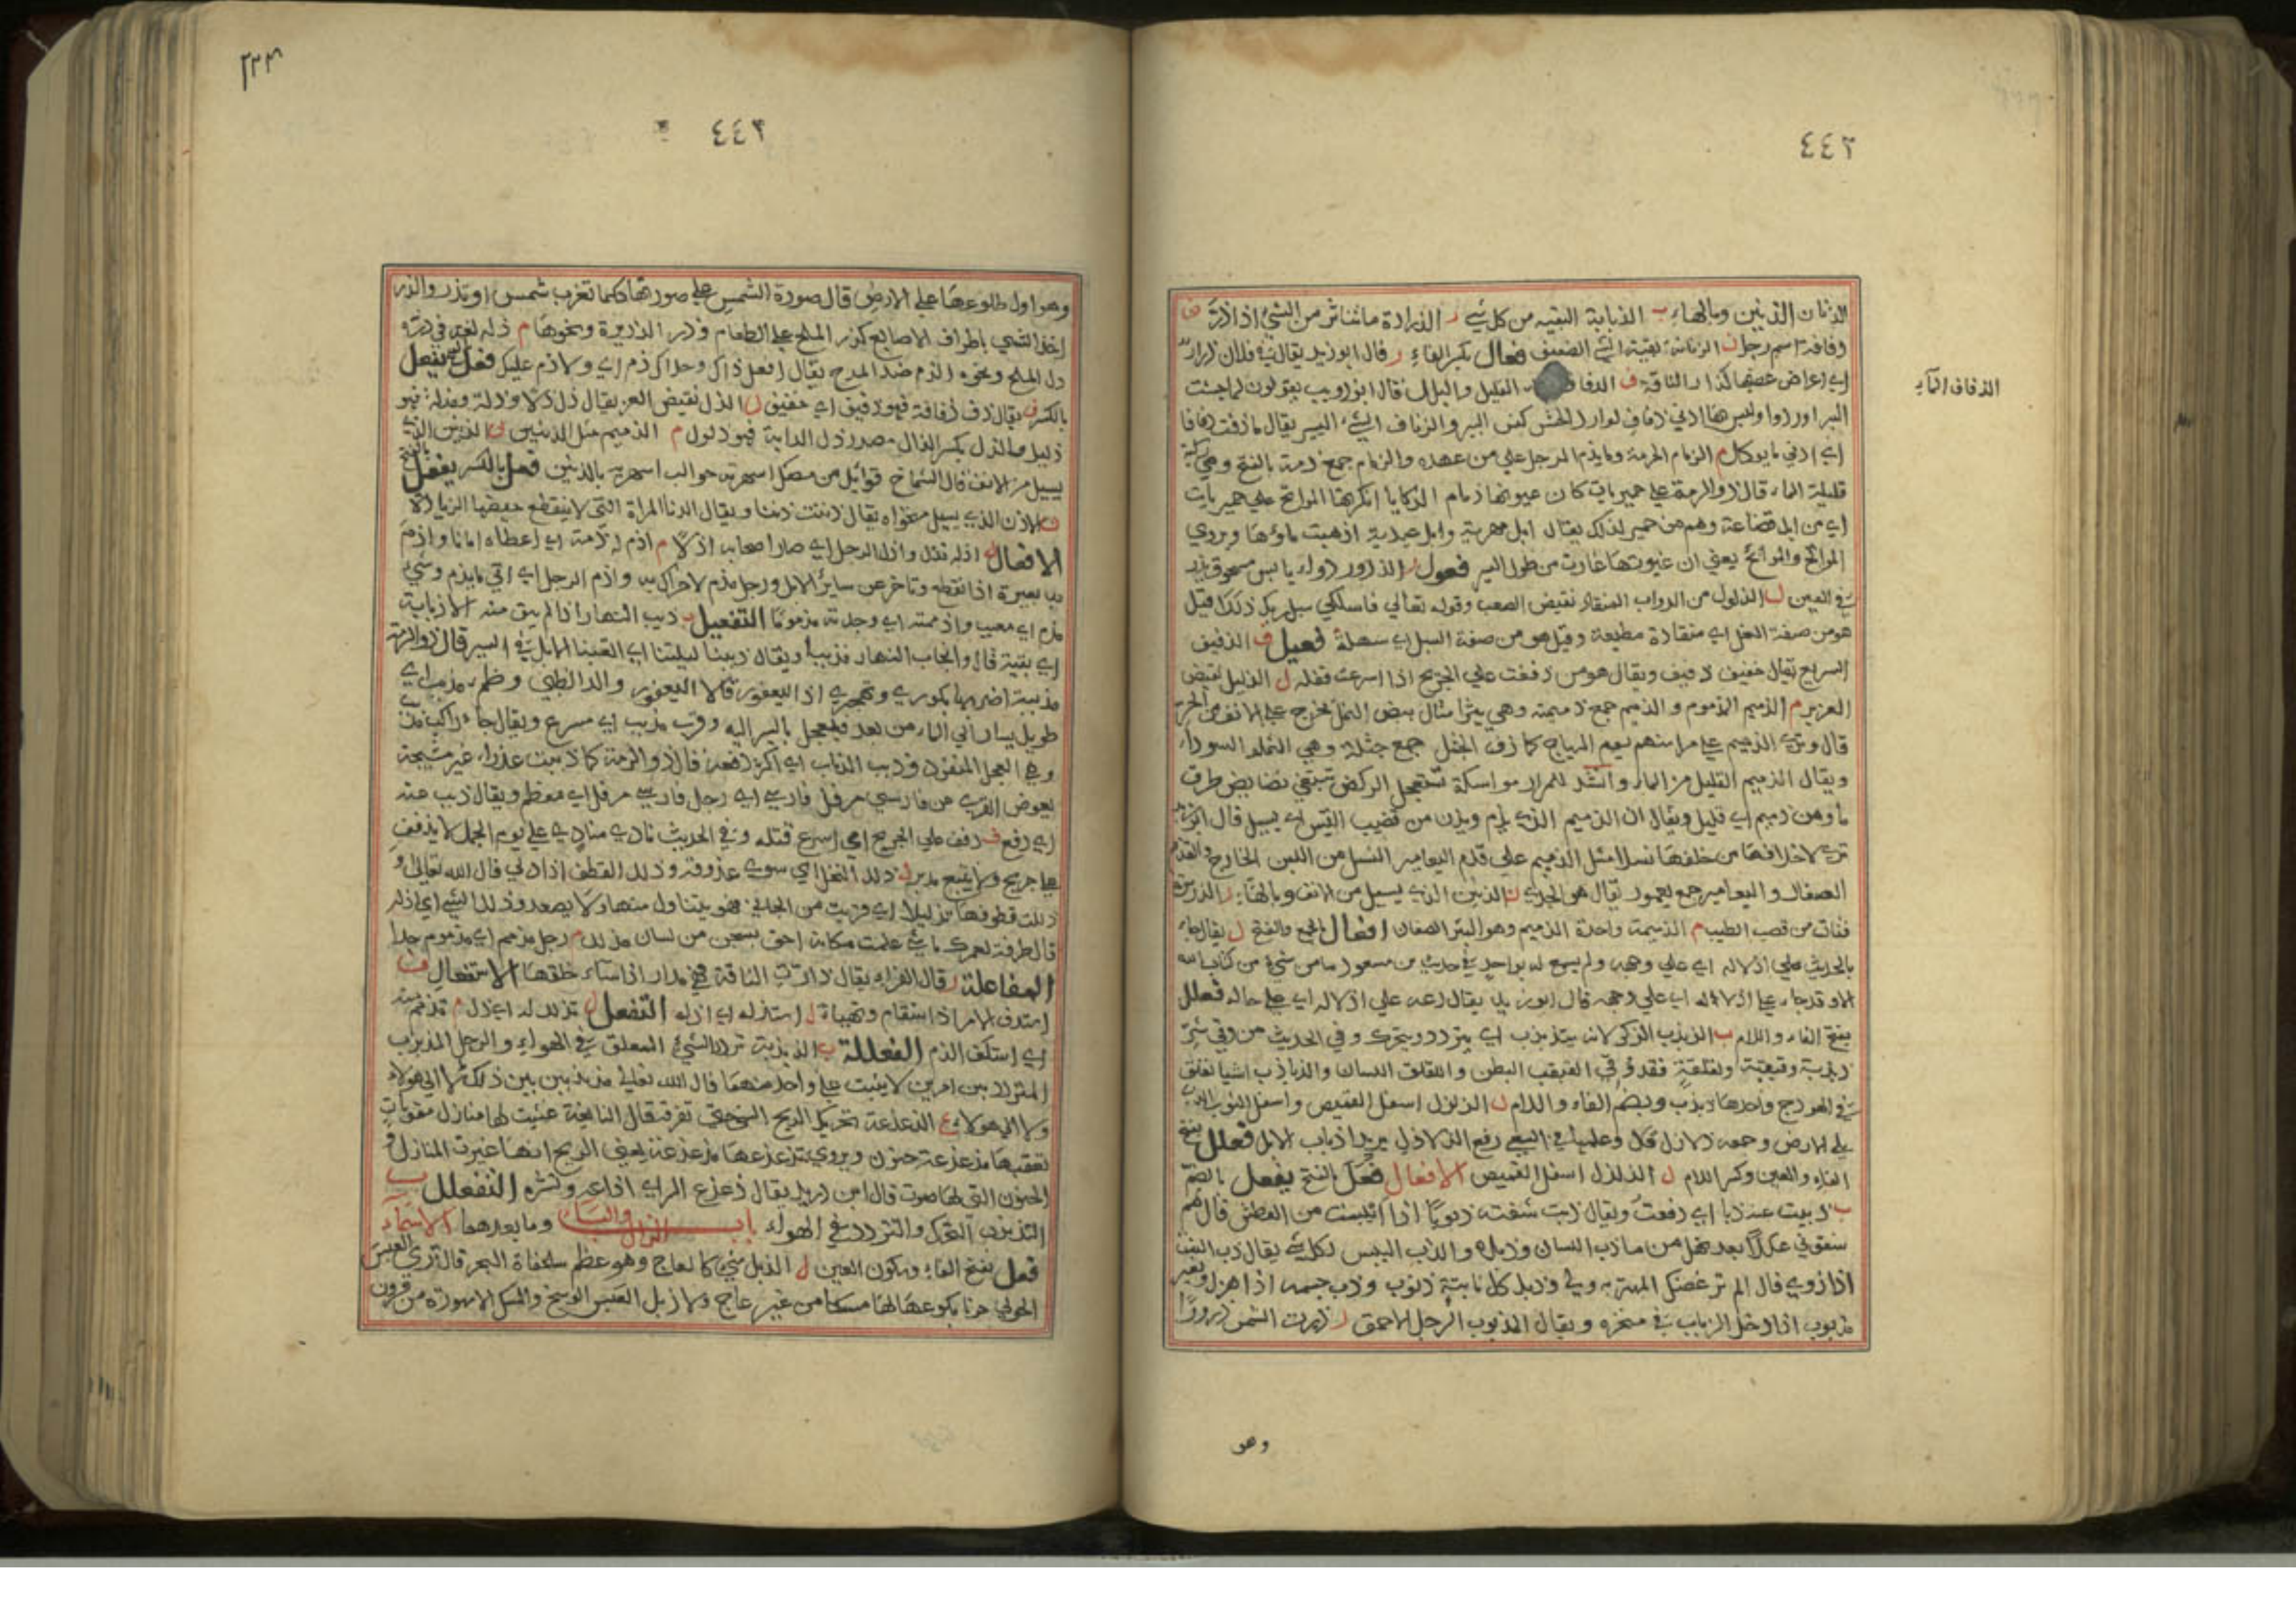 ٤٤٢
الذنان الذنين وبالهاء ب الذبابة البقيه من كل شيء ر الذرارة ما تناثر من الشيء اذا ذر ف
وفافة اسم رجل ن الذنانة بقية الشيء الضعيف فعال بكسر الفاء ر قال ابو زيد يقال في فلان ذرار
اي اعراض غضبا كذرار الناقة ف الذفاف القليل والبلل قال ابو ذويب يقولون لما جشت
البير اوردوا وليس بها ادنى ذفاف لوارد الجش كنس البير والذفاف الشيء اليسير يقال ما ذقت ذفافا
الذفاف الماء
اي ادني ما يوكل م الذمام الحرمة وما يذم الرجل علي من عهده والذمام جمع ذمة بالفتح وهي
قليلة الماء قال ذو الرمة علي حميريات كان عيونها ذمام الركايا انكزتها المواتح علي حميريات
اي من ابل قضاعة وهم من حمير لذلك يقال ابل مهرية وابل عيدية اذهبت ماؤها ويروي
المواتح والموائح يعني ان عيونها غارت من طول السير فعول ر الذرور دواء يابس مسحوق يذر
في العين ل الذلول من الدواب المنقاد نقيض الصعب وقوله تعالي فاسلكي سبل ربك ذللا قيل
هو من صفة النحل اي منقادة مطيعة وقيل هو من صفة السبل اي سهلة فعيل ف الذفيف
السريع يقال خفيف ذفيف ويقال هو من ذففت علي الجريح اذا اسرعت قتله ل الذليل نقيض
العزيز م الذميم المذموم والذميم جمع ذميمة وهي بثر امثال بيض النمل تخرج علي الانف من الحر
قال وتري الذميم علي مراسنهم يوم الهياج كمازن الجثل جمع جثلة وهي النملة السوداء
ويقال الذميم القليل من الماء وانشد للمرار مواسكة تستعجل الركض تبتغي نضايض طرق
ماوهن ذميم اي قليل ويقال ان الذميم الذي يذم ويذن من قضيب التيس اي يسيل قال ابو زبيد
تري لاخلافها من خلفها نسلا مثل الذميم علي قدم اليعامير النسل من اللبن الخارج والقدم
الصغار واليعامير جمع يعمور يقال هو الجدي ن الذنين الذي يسيل من الانف وبالهاء ر الذريرة
فتات من قصب الطيب م الذميمة واحدة الذميم وهو البثر الصغار افعال بالجمع والفتح ل يقال جاء
بالحديث علي اذلاله اي علي وجهه ولم يسمع له بواحد في حديث بن مسعود ما من شيء من كتاب الله
الا وقد جاء علي اذلاله اي علي وجهه قال ابو زيد يقال دعه علي اذلاله اي علي حاله فعلل
بفتح الفاء واللام ب الذبذب الذكر لانه يتذبذب اي يتردد ويتحرك وفي الحديث من وقي شر
ذبذبه وقبقبه ولقلقه فقد وقي القبقب البطن واللقلق اللسان والذباذب اشيا تعلق
في الهودج واحدها ذبذب وبضم الفاء واللام ل الذلذل اسفل القميص واسفل الثوب
يلي الارض وجمعه ذلاذل
الفاء والعين وكسر اللام ل الذلذل اسفل القميص الافعال فعل بالفتح يفعل بالضم
ب ذبيت عنه ذبا اي دفعت ويقال ذبت شفته ذبوبا اذا يبست من العطش قال هم
سقوني عللا بعد نهل من ماذب اللسان وذبل والذب اليبس لكل شيء يقال ذب النبت
اذا ذوي قال الم تر غصنك المهتز وذبل كل نابتة ذبوب وذب جسمه اذا هزل وبعير
مذبوب اذا دخل الذباب في منخره ويقال المذبوب الرجل الاحمق ر ذرت الشمس ذرورا
وهو
٤٤٢
٢٢٣
وهو اول طلوعها علي الارض قال صورة الشمس علي صورتها كلما تغرب شمس او تذر والذر
اخذ الشيء باطراف الاصابع كذر الملح علي الطعام وذر الذريرة ونحوها م
ذر الملح ونحوه الذم ضد المدح يقال افعل ذاك وخلاك ذم اي ولا ذم عليك فعل بالفتح يفعل
بالكسر ف يقال ذف ذفافة فهو ذفيف اي خفيف ل الذل نقيض العز يقال ذل ذلا وذلة ومذلة فهو
ذليل والذل بكسر الذال مصدر ذل الدابة فهو ذلول م الذميم مثل الذنين ن الذنين الذي
يسيل من الانف قال الشماخ توائل من مصك انصبته حوالب اسهريه بالذنين فعل بالكسر يفعل بالفتح
ن الاذن الذي يسيل منخراه يقال ذننت ذننا ويقال الذنا المراة التي لا ينقطع حيضها الزيادة
الافعال ل اذله فذل واذل الرجل اي صار اصحابه اذلاء م اذم له ذمة اي اعطاه امانا واذم
به بعيره اذا انقطع وتاخر عن ساير الابل ورجل مذم لا حراك به واذم الرجل اي اتي ما يذم وشيء
مذم اي معيب واذممته اي وجدته مذموما التفعيل ب ذبب النهار اذا لم يبق منه الا ذبابة
اي بقية قال وانجاب النهار فذببا ويقال ذببنا ليلتنا اي اتعبنا الابل في السير قال ذو الرمة
مذببة اضر بها بكوري وتهجيري اذا اليعفور قالا اليعفور والد الظبي وظمء مذبب اي
طويل يسار الي الماء من بعد فيعجل بالسير اليه وقرب مذبب اي مسرع ويقال جاء راكب مذبب
وهو العجل المنفرد وذبب الذباب اي اكثر دفعه قال ذو الرمة كما ذببت عذراء غير مشيحة
بعوض القري عن فارسي مرفل فارسي اي رجل فارسي مرفل اي معظم ويقال ذبب عنه
اي دفع ف ذفف علي الجريح اي اسرع قتله وفي الحديث نادي منادي علي يوم الجمل لا يذفف
علي جريح ولا يتبع مدبر ل ذلل النخل اي سوي عذوقه وذلل القطف اذا دلي قال الله تعالي و
ذللت قطوفها تذليلا اي قربت من الجاني فهو يتناول منها ولا يصعد وذلل الشيء اي اذله
قال طرفة لعمرك ما شيء علمت مكانه احق بسجن من لسان مذلل م رجل مذمم اي مذموم جدا
المفاعلة ر قال الفراء يقال ذارت الناقة فهي مذار اذا ساء خلقها الاستفعال ف
استذف الامر اذا استقام وتهيا ل استذله اي اذله التفعل ل تذلل له اي ذل م تذمم منه
اي استنكف الذم الفعللة ب الذبذبة تردد الشيء المعلق في الهواء والرجل المذبذب
المتردد بين امرين لا يثبت علي واحد منهما قال الله تعالي مذبذبين بين ذلك لا الي هولاء
ولا الي هولاء ع الذعذعة تحريك الريح الشيء حتي تفرقه قال النابغة غشيت لها منازل مقويات
تعقبها مذعذعة حنون ويروي تذعذعها مذعذعة يعني الريح انها غيرت المنازل و
الحنون التي لها صوت قال ابن دريد يقال ذعذع السر اي اذاعه ونشره التفعلل ب
التذبذب التحرك والتردد في الهواء باب الذال والباء وما بعدهما الاسماء
فعل بفتح الفاء وسكون العين ل الذبل شيء كالعاج وهو عظم سلحفاة البحر قال تري العبس
الحولي جونا بكوعها لها مسكا من غير عاج ولا ذبل العبس الوسخ والمسك الاسورة من قرون